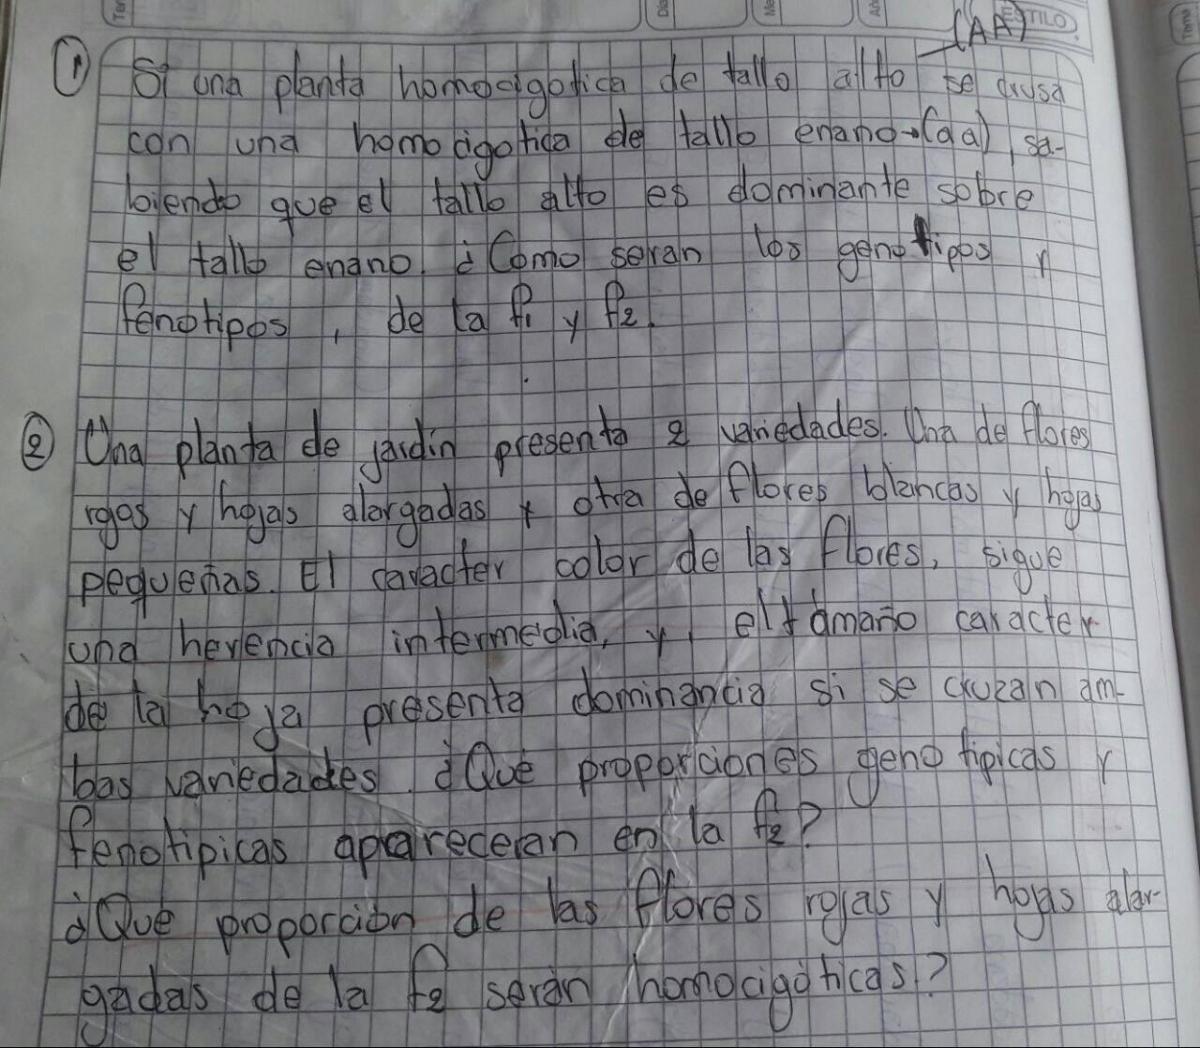 (AA)
① Si una planta homocigotica de tallo alto se crusa
con una homocigotica de tallo enano→(aa), sa-
biendo que el tallo alto es dominante sobre
el tallo enano. ¿Como seran los genotipos y
fenotipos, de la f1 y f2.
② Una planta de jardin presenta 2 variedades. Una de flores
rojas y hojas alargadas y otra de flores blancas y hojas
pequeñas. El caracter color de las flores, sigue
una herencia intermedia, y, el tamaño caracter
de la hoja presenta dominancia si se cruzan am-
bas variedades. ¿Que proporciones genotipicas y
fenotipicas apareceran en la f2?
¿Que proporción de las flores rojas y hojas alar-
gadas de la f2 serán homocigóticas?